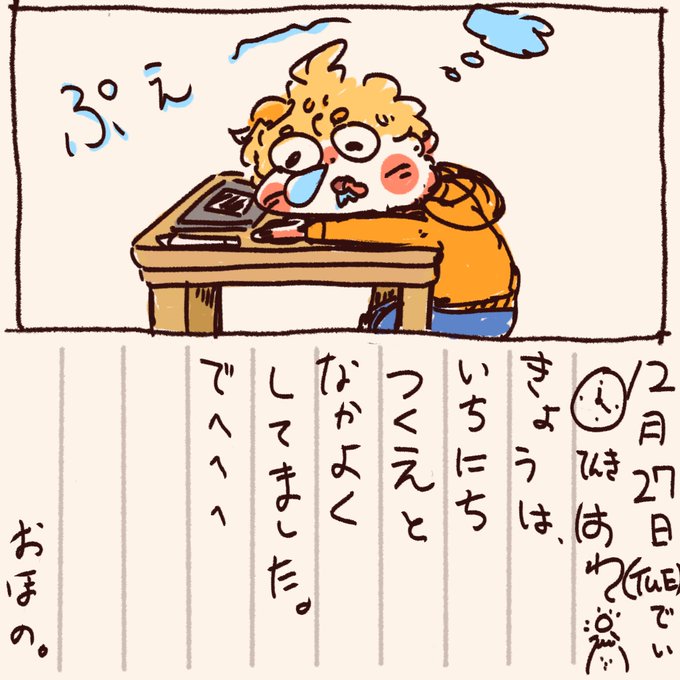 ぷぇ
12月27日(TUE)でい
てんき はれ
きょうは、
いちにち
つくえと
なかよく
してました。
でへへへ
おほの。